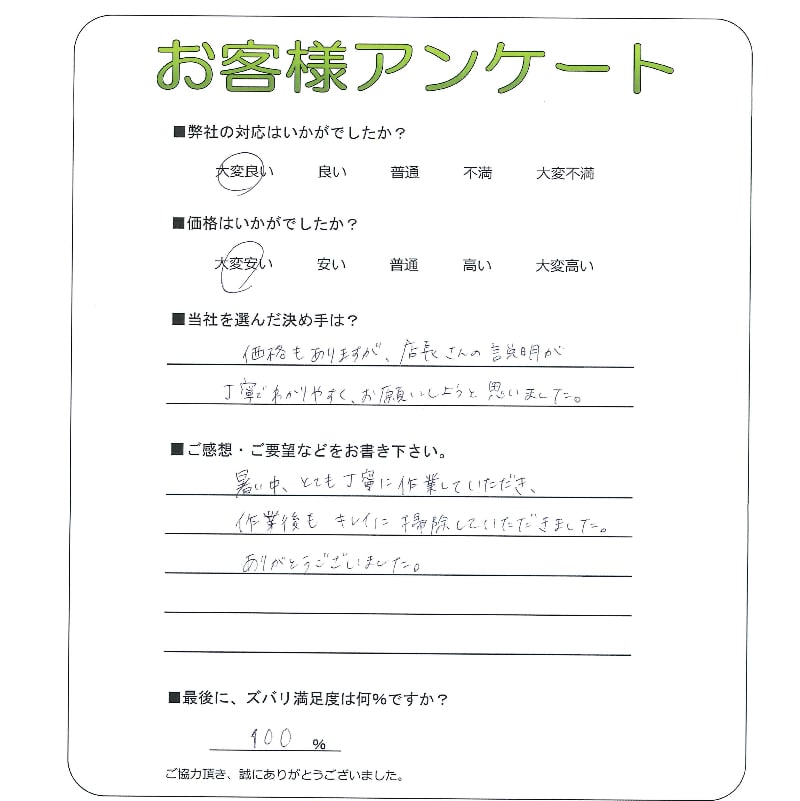 お客様アンケート
■弊社の対応はいかがでしたか？
大変良い 良い 普通 不満 大変不満
■価格はいかがでしたか？
大変安い 安い 普通 高い 大変高い
■当社を選んだ決め手は？
価格もありますが、店長さんの説明が
丁寧でわかりやすく、お願いしようと思いました。
■ご感想・ご要望などをお書き下さい。
暑い中、とても丁寧に作業していただき、
作業後もキレイに掃除していただきました。
ありがとうございました。
■最後に、ズバリ満足度は何%ですか？
100 %
ご協力頂き、誠にありがとうございました。